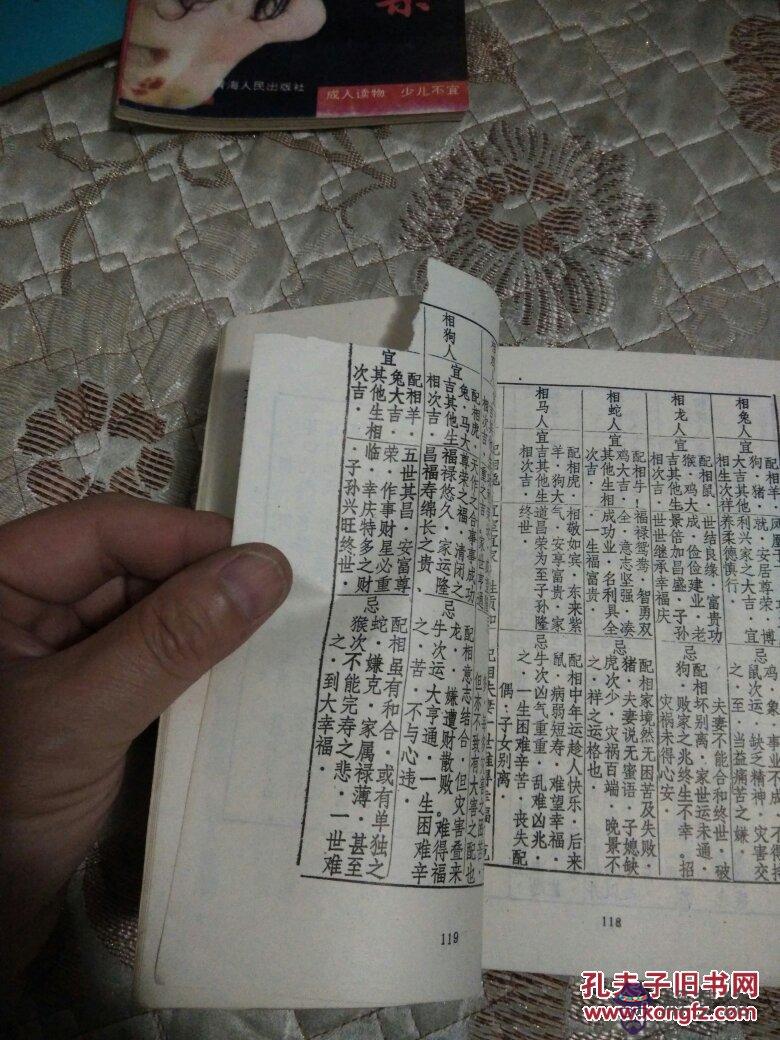 荣
青海人民出版社
成人读物 少儿不宜
相兔人
宜
狗·猪·就·安居尊荣·博
大吉其他利兴家之大吉·宜
相生次祥养柔德慎行·
忌
鼠次运·缺之精神·灾害交
之·至·当益痛苦之嫌·
相龙人
宜
配相鼠·世结良缘·富贵功
猴·鸡大成·俭俭建业·老
吉其他生景倍加昌盛·子孙
相次吉·世世继承幸福庆
忌
夫妻不能合和终世·破
配相坏别离·家世运未通·
狗·败家之兆终生不幸·招
灾祸未得心安·
相蛇人
宜
配相牛·福禄鸳鸯·智勇双
鸡大吉·全·意志坚强·凑
其他生相成功业·名利具全
次吉·一生福富贵·
忌
配相家境然无困苦及失败·
猪·夫妻说无蜜语·子媳缺
虎次少·灾祸百端·晚景不
之·祥之运格也·
相马人
宜
配相虎·相敬如宾·东来紫
羊·狗大气·安尊富贵·家
吉其他生道昌荣为至子孙隆
相次吉·终世·
忌
配相中年运趁人快乐·后来
鼠·病弱短寿·难望幸福·
牛次凶气重重·乱难凶兆·
之·一生困难辛苦·丧失配
偶·子女别离·
118
但亦不致有大害之配也
相狗人
宜
配相虎·天作之合事事成功
兔·马大尊荣之福·清闭之
吉其他生福禄悠久·家运隆
相次吉·昌福寿绵长之贵·
忌
配相意志结合·但灾害叠来
龙·嫌遭财散败·难得福
牛次运大亨通·一生困难辛
之·之苦·不与心违·
宜
配相羊·五世其昌·安富尊
兔大吉·荣·作事财星必重
其他生相临·幸庆特多之财
次吉·子孙兴旺终世·
忌
配相虽有和合·或有单独之
蛇·嫌克·家属禄薄·甚至
猴次不能完寿之悲·一世难
之·到大幸福·
119
孔夫子旧书网
www.kongfz.com